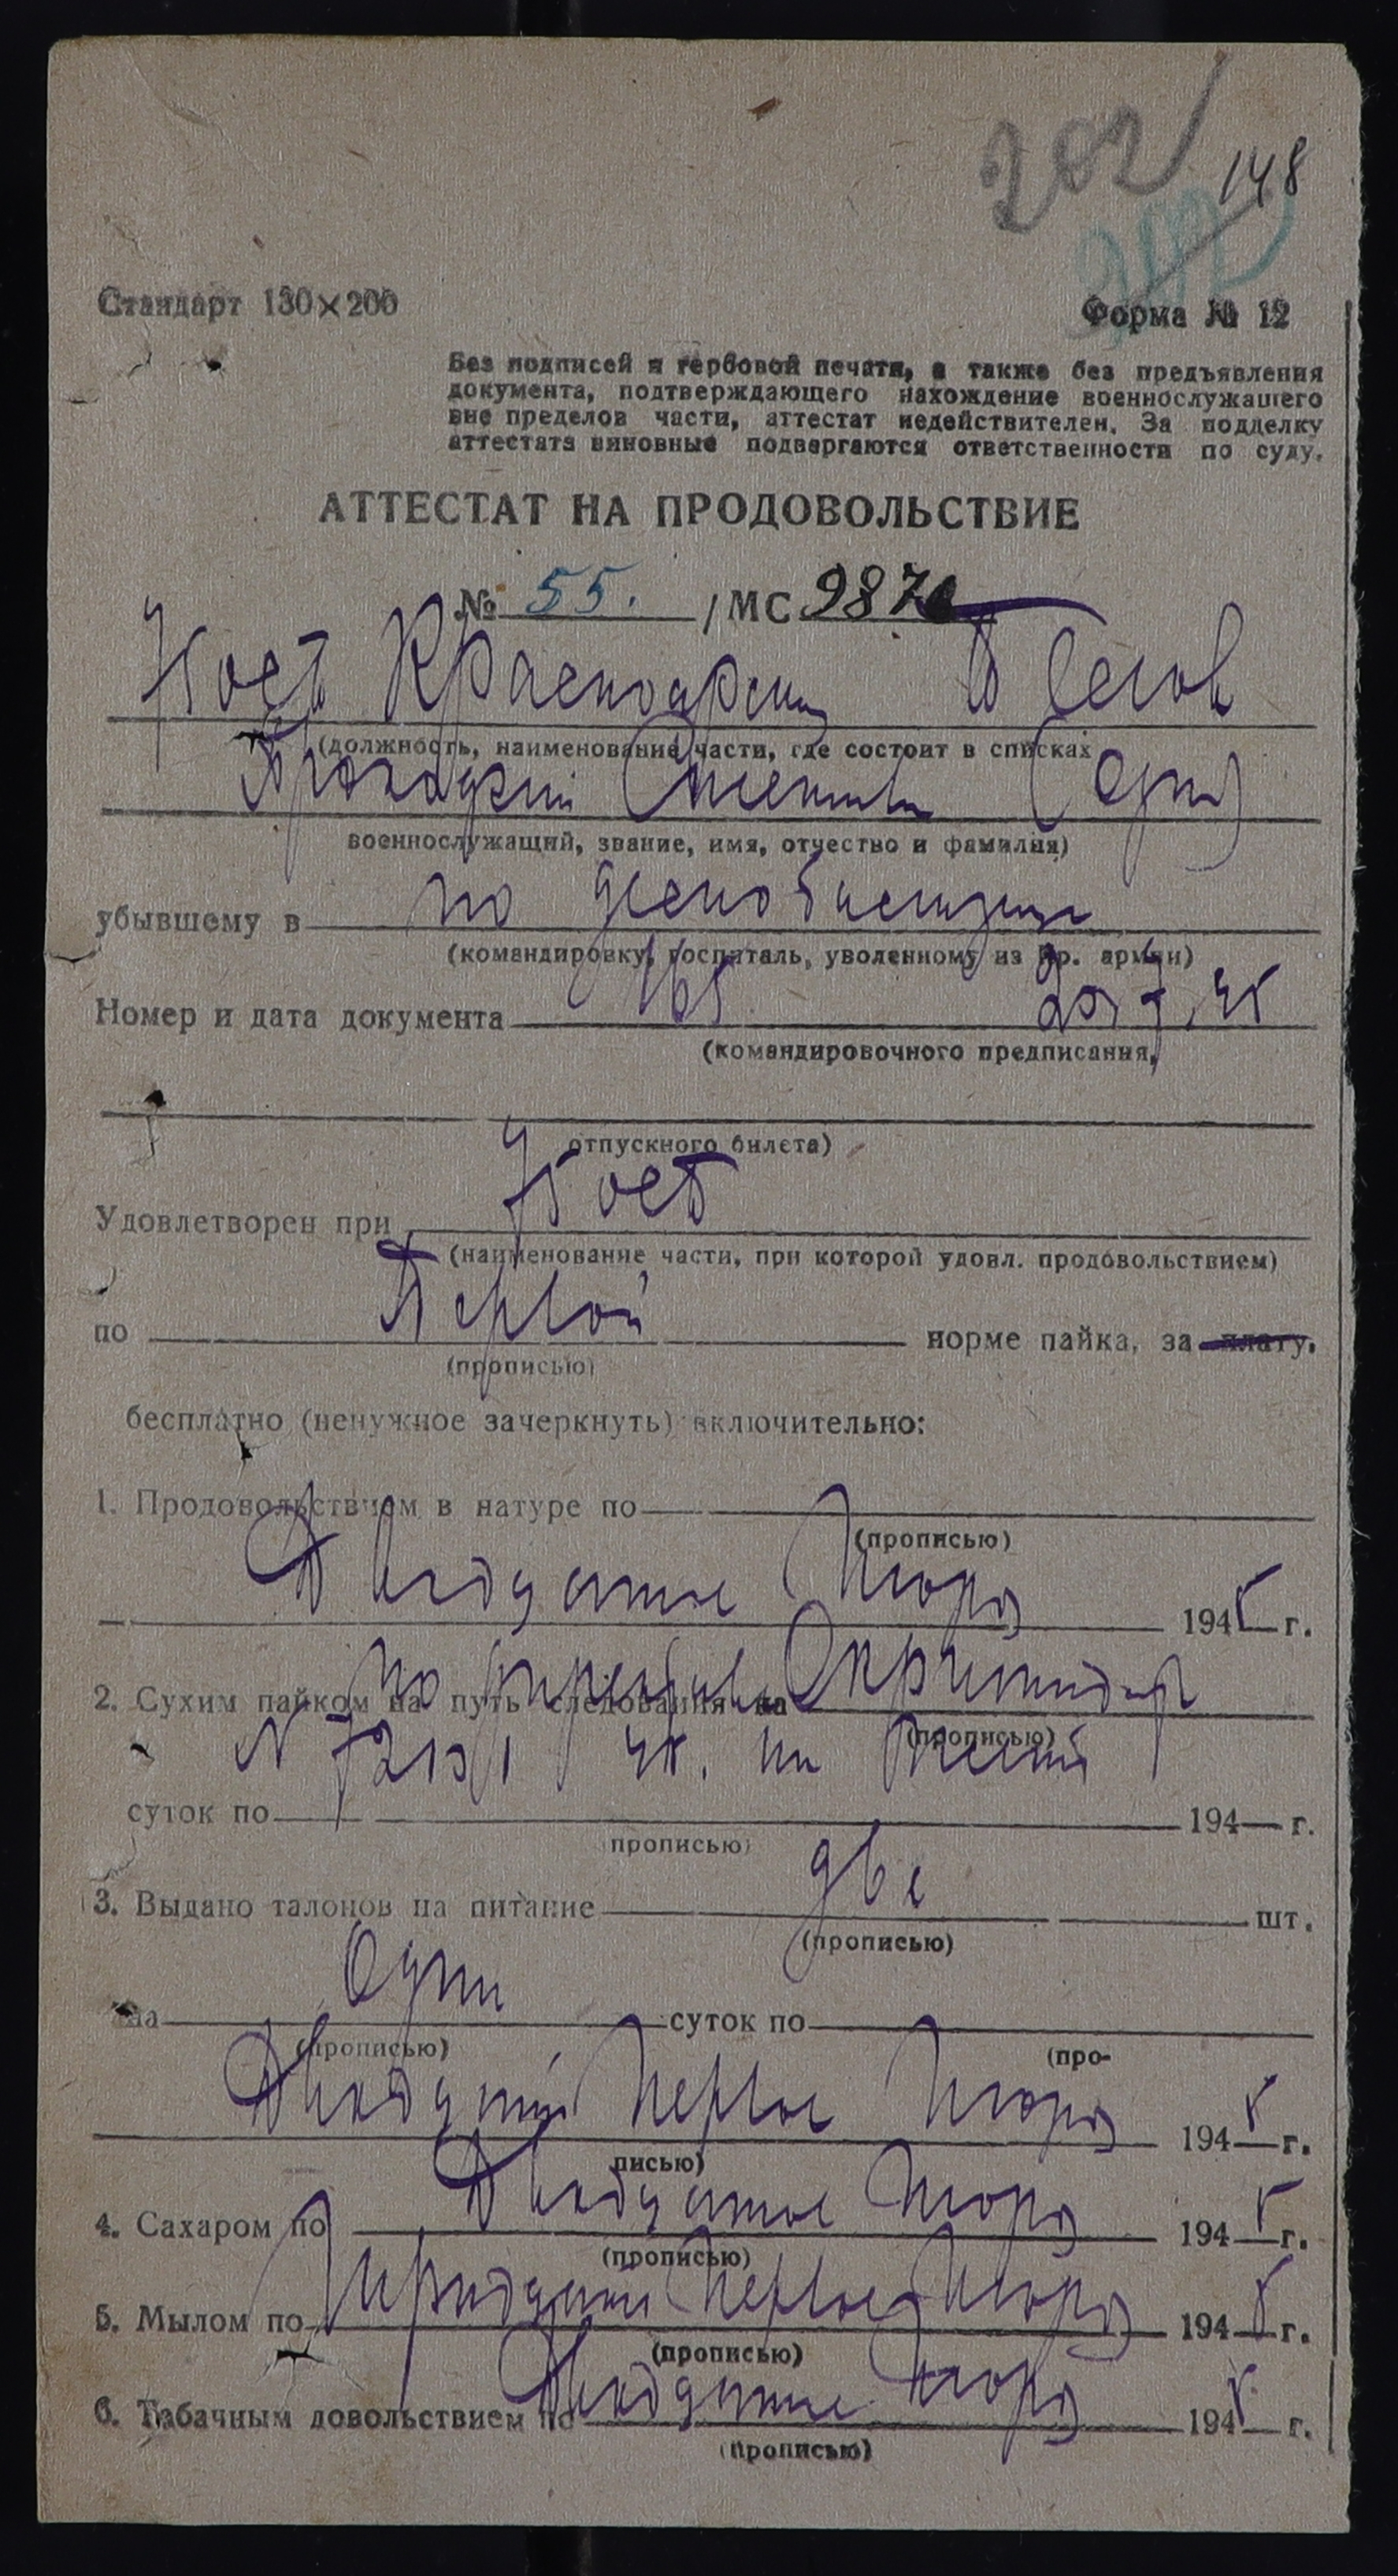 202
148
Стандарт 130×200
Форма № 12
Без подписей и гербовой печати, а также без предъявления
документа, подтверждающего нахождение военнослужащего
вне пределов части, аттестат недействителен. За подделку
аттестата виновные подвергаются ответственности по суду.
АТТЕСТАТ НА ПРОДОВОЛЬСТВИЕ
№ 55. /МС 987
(должность, наименование части, где состоит в списках
военнослужащий, звание, имя, отчество и фамилия)
убывшему в по демобилизации
(командировку, госпиталь, уволенному из Кр. армии)
Номер и дата документа 165 20/7.45
(командировочного предписания,
отпускного билета)
Удовлетворен при
(наименование части, при которой удовл. продовольствием)
по Первой норме пайка, за плату,
(прописью)
бесплатно (ненужное зачеркнуть) включительно:
1. Продовольствием в натуре по
(прописью)
Двадцатое Июля 1945 г.
2. Сухим пайком на путь следования на
(прописью)
суток по 194 г.
прописью)
3. Выдано талонов на питание две шт.
(прописью)
на Одни суток по
(прописью) (про-
Двадцать Первое Июля 1945 г.
писью)
4. Сахаром по Двадцатое Июля 1945 г.
(прописью)
5. Мылом по Тридцать Первое Июля 1945 г.
(прописью)
6. Табачным довольствием по Двадцатое Июля 1945 г.
(прописью)